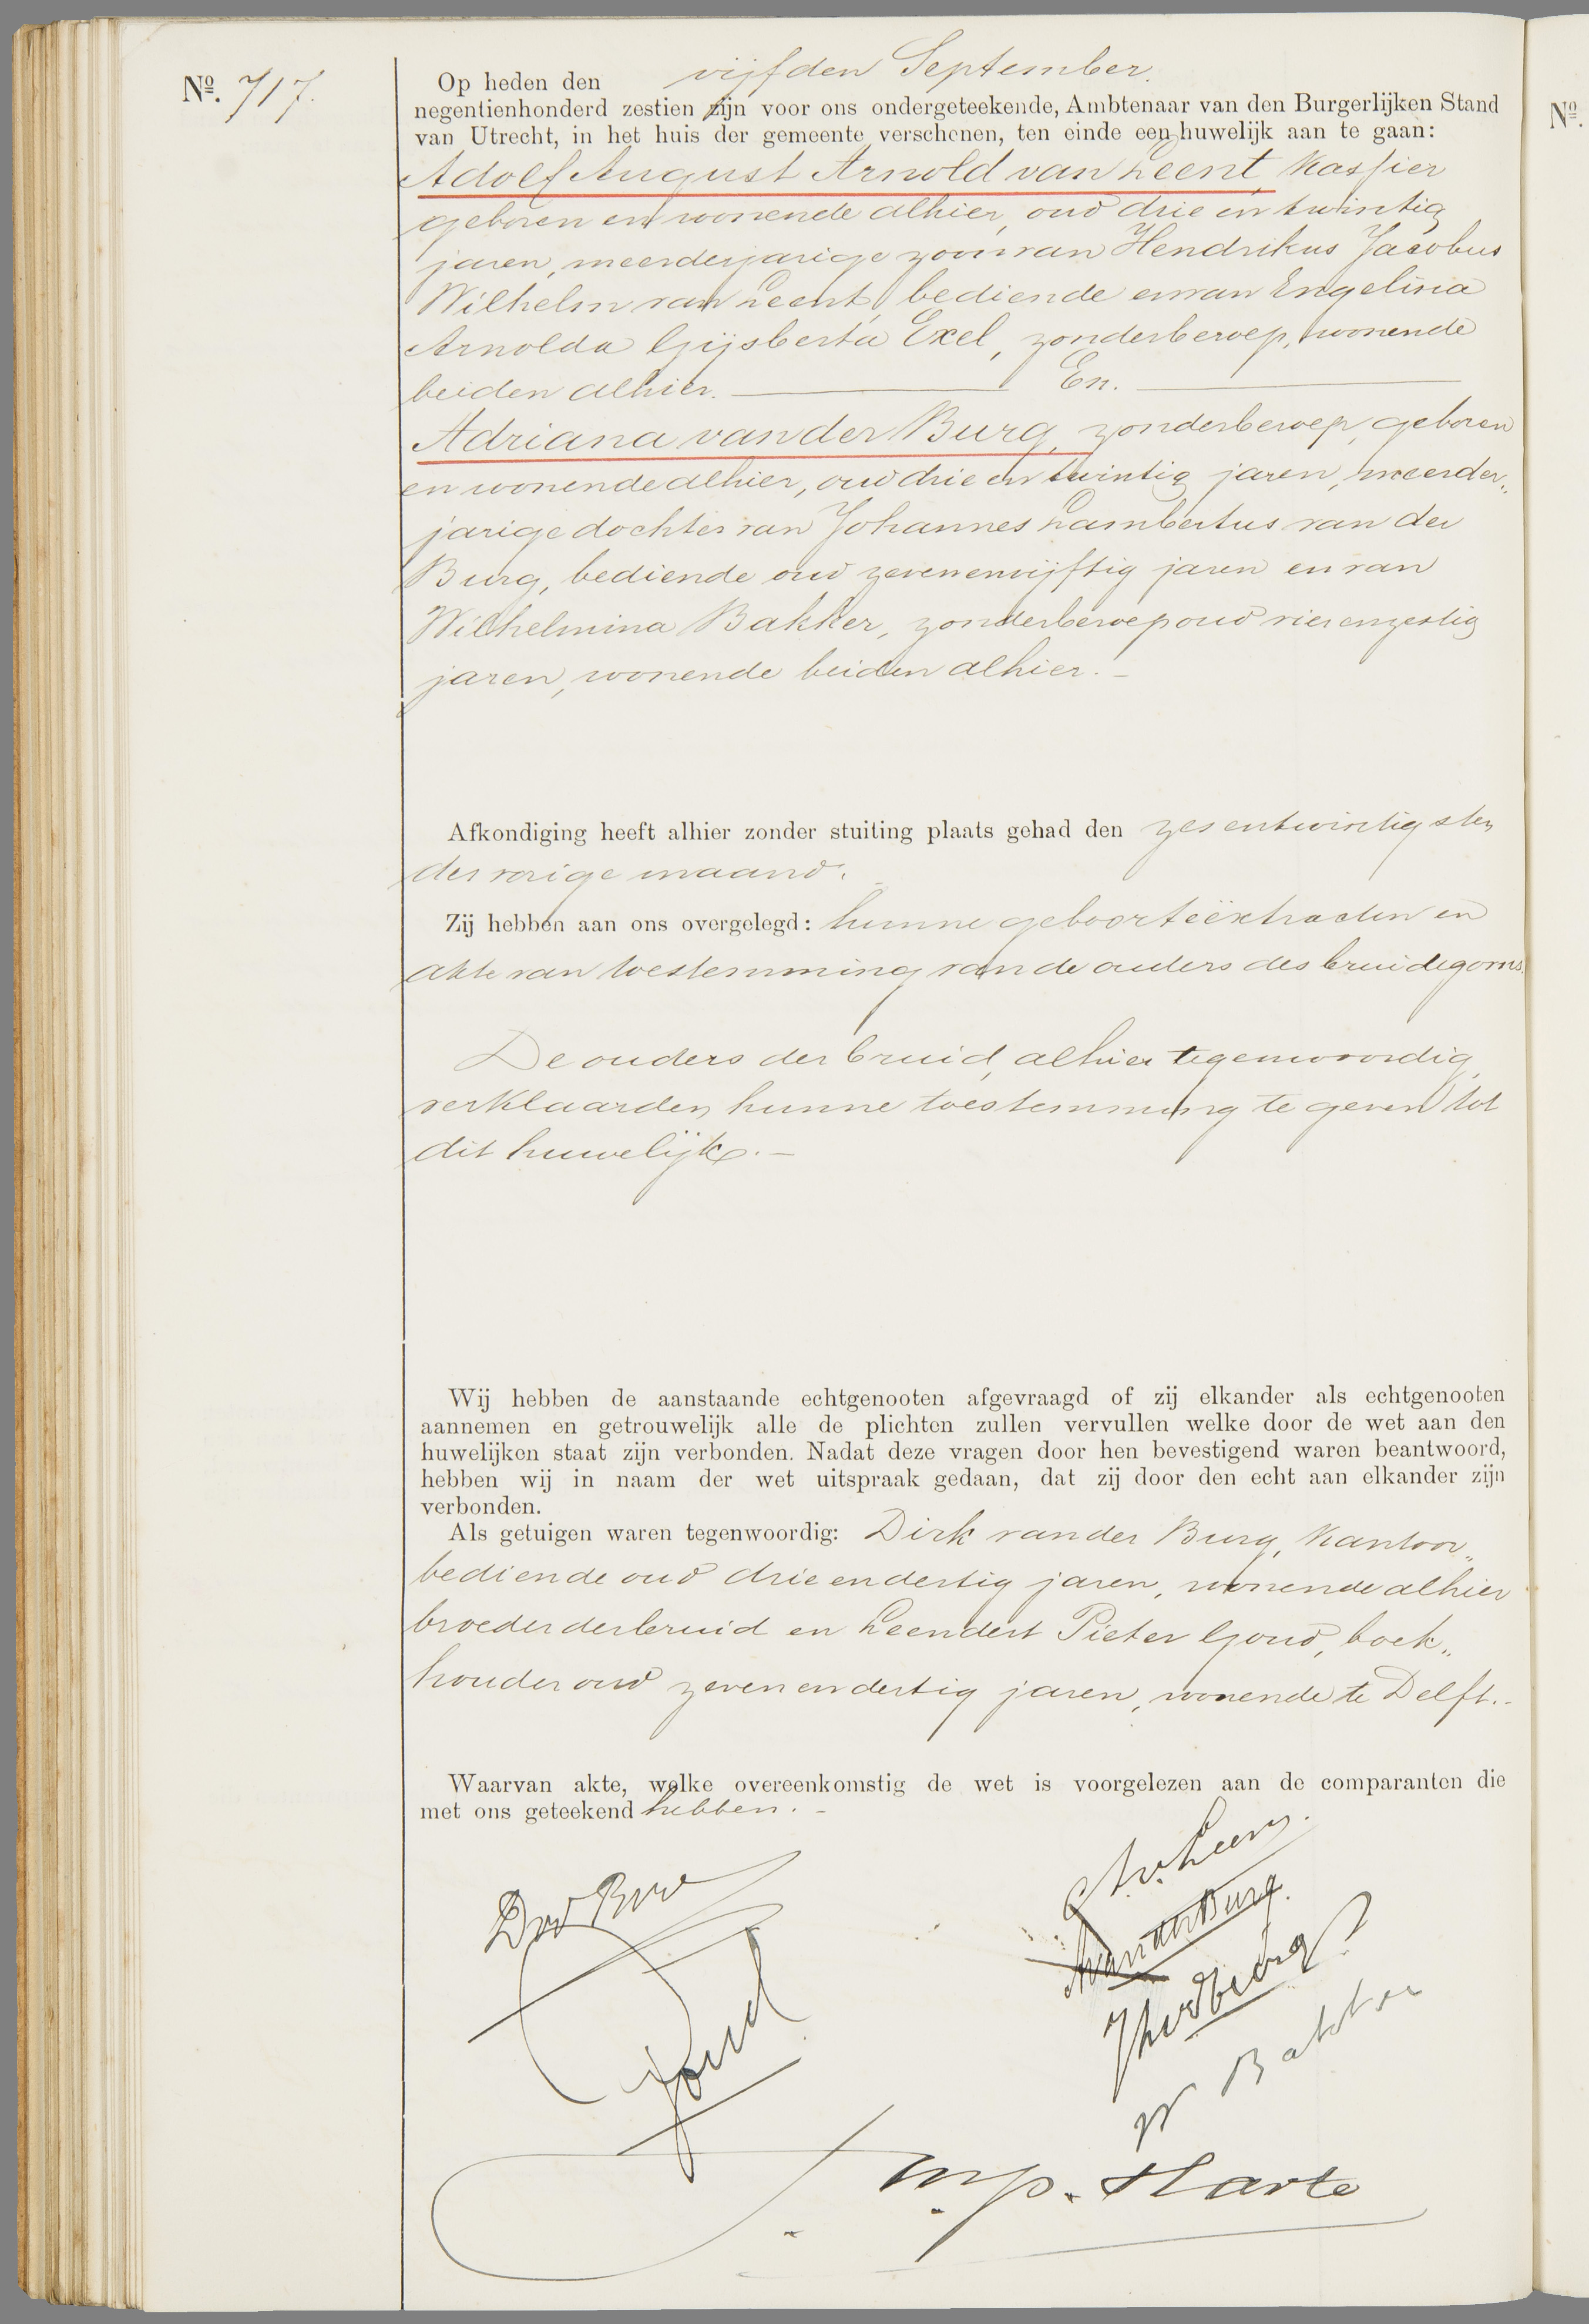 Nº. 717.
Op heden den vijfden September.
negentienhonderd zestien zijn voor ons ondergeteekende, Ambtenaar van den Burgerlijken Stand
van Utrecht, in het huis der gemeente verschenen, ten einde een huwelijk aan te gaan:
Adolf August Arnold van Leent, kassier
geboren en wonende alhier, oud drie en twintig
jaren, meerderjarige zoon van Hendrikus Jacobus
Wilhelm van Leent, bediende en van Engelina
Arnolda Gijsberta Exel, zonder beroep, wonende
beiden alhier. En.
Adriana van der Burg, zonder beroep, geboren
en wonende alhier, oud drie en twintig jaren, meerder„
jarige dochter van Johannes Lambertus van der
Burg, bediende oud zevenenvijftig jaren en van
Wilhelmina Bakker, zonder beroep oud vierenzestig
jaren, wonende beiden alhier. –
Afkondiging heeft alhier zonder stuiting plaats gehad den zesentwintigsten
der vorige maand.
Zij hebben aan ons overgelegd: hunne geboorteëxtracten en
akte van toestemming van de ouders des bruidegoms.
De ouders der bruid, alhier tegenwoordig,
verklaarden hunne toestemming te geven tot
dit huwelijk. –
Wij hebben de aanstaande echtgenooten afgevraagd of zij elkander als echtgenooten
aannemen en getrouwelijk alle de plichten zullen vervullen welke door de wet aan den
huwelijken staat zijn verbonden. Nadat deze vragen door hen bevestigend waren beantwoord,
hebben wij in naam der wet uitspraak gedaan, dat zij door den echt aan elkander zijn
verbonden.
Als getuigen waren tegenwoordig: Dirk van der Burg, kantoor„
bediende oud drie en dertig jaren, wonende alhier
broeder der bruid en Leendert Pieter Goud, boek„
houder oud zeven en dertig jaren, wonende te Delft. –
Waarvan akte, welke overeenkomstig de wet is voorgelezen aan de comparanten die
met ons geteekend hebben. –
A v. Leent.
DvdBurg
A van der Burg.
JLvdBurg
Goud
W Bakker
M. P. Harte
Nº.